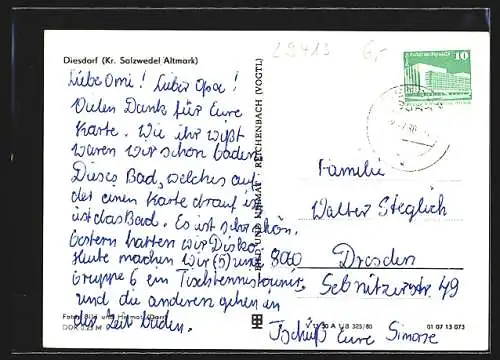 Diesdorf (Kr. Salzwedel Altmark)
Liebe Omi! Lieber Opa!
Vielen Dank für Eure
Karte. Wie ihr wißt
waren wir schon baden.
Dieses Bad, welches auf
der einen Karte drauf ist
ist das Bad. Es ist sehr schön.
Gestern hatten wir Disko.
Heute machen wir (5) und
Gruppe 6 ein Tischtennisturnier
und die anderen gehen in
der Zeit baden.
Tschüß Eure Simone
Foto: Bild und Heimat
DDR 0,25 M
BILD UND HEIMAT REICHENBACH (VOGTL)
V 11 50 A 1/B 325/80
01 07 13 073
29413
6,-
10
Familie
Walter Steglich
8060 Dresden
Sebnitzerstr. 49